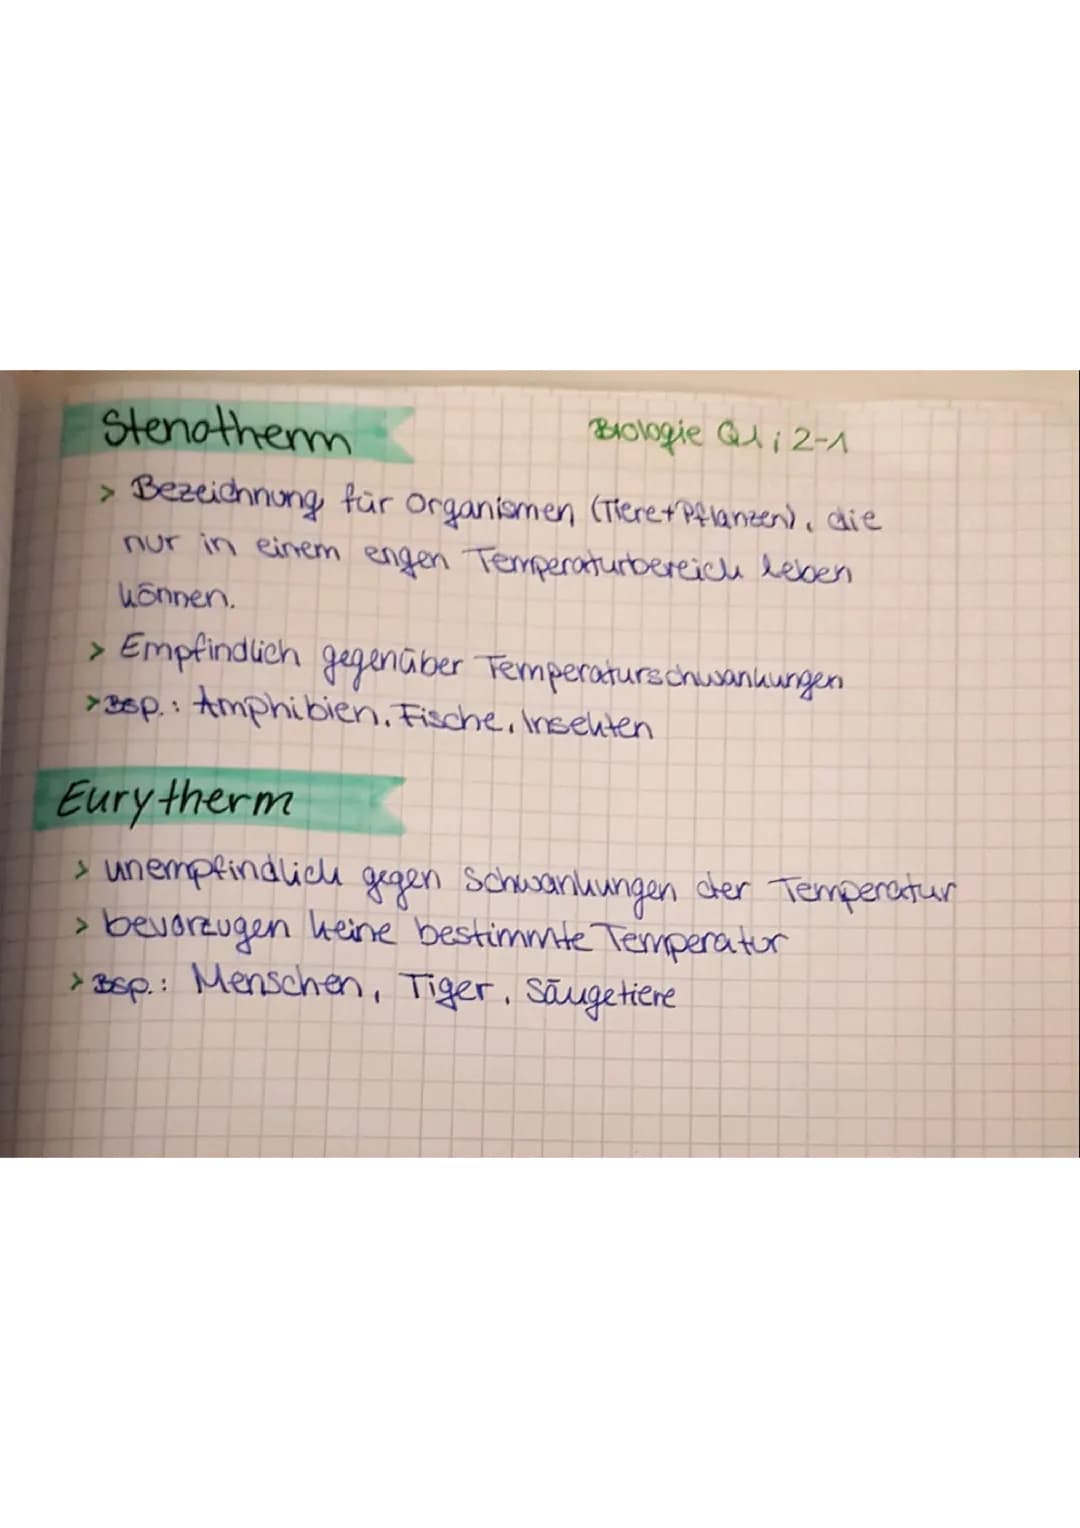 Stenotherm
Biologie Q1; 2-1
> Bezeichnung für Organismen (Tiere+Pflanzen), die
nur in einem engen Temperaturbereich leben
können.
> Empfindlich gegenüber Temperaturschwankungen
> Bsp.: Amphibien, Fische, Insekten
Eurytherm
> unempfindlich gegen Schwankungen der Temperatur
> bevorzugen keine bestimmte Temperatur
> Bsp.: Menschen, Tiger, Säugetiere